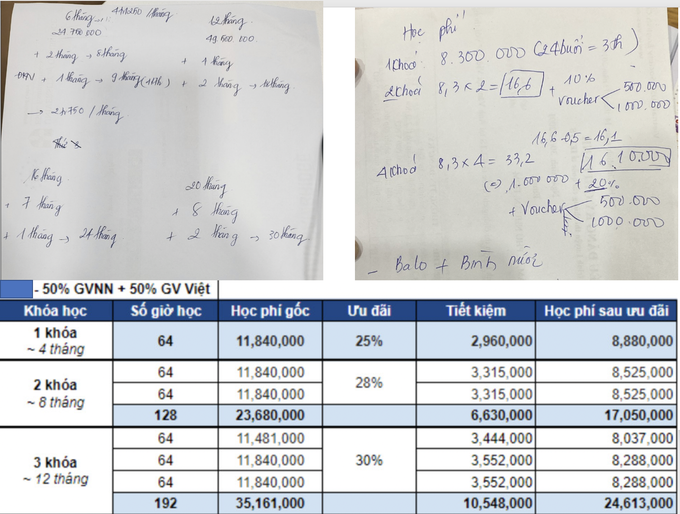 6 tháng
4.141.260 /tháng
12 tháng
24.780.000
49.680.000
+ 2 tháng → 8 tháng
+ 4 tháng
+ 1 tháng → 9 tháng
+ 2 tháng → 18 tháng
→ /tháng
16 tháng
20 tháng
+ 7 tháng
+ 8 tháng
+ 1 tháng → 24 tháng
+ 2 tháng → 30 tháng
Học phí
1 khoá 8.300.000 (24 buổi = 3th)
2 khoá 8,3 x 2 = 16,6 + 10%
voucher
500.000
1.000.000
16,6 - 0,5 = 16,1
4 khoá 8,3 x 4 = 33,2
16.10.000
1.000.000 + 20%
+ voucher
500.000
1000.000
- Balo + Bình nước
- 50% GVNN + 50% GV Việt
Khóa học Số giờ học Học phí gốc Ưu đãi Tiết kiệm Học phí sau ưu đãi
1 khóa
~ 4 tháng
64 11,840,000 25% 2,960,000 8,880,000
2 khóa
~ 8 tháng
28%
64 11,840,000 3,315,000 8,525,000
64 11,840,000 3,315,000 8,525,000
128 23,680,000 6,630,000 17,050,000
3 khóa
~ 12 tháng
30%
64 11,481,000 3,444,000 8,037,000
64 11,840,000 3,552,000 8,288,000
64 11,840,000 3,552,000 8,288,000
192 35,161,000 10,548,000 24,613,000